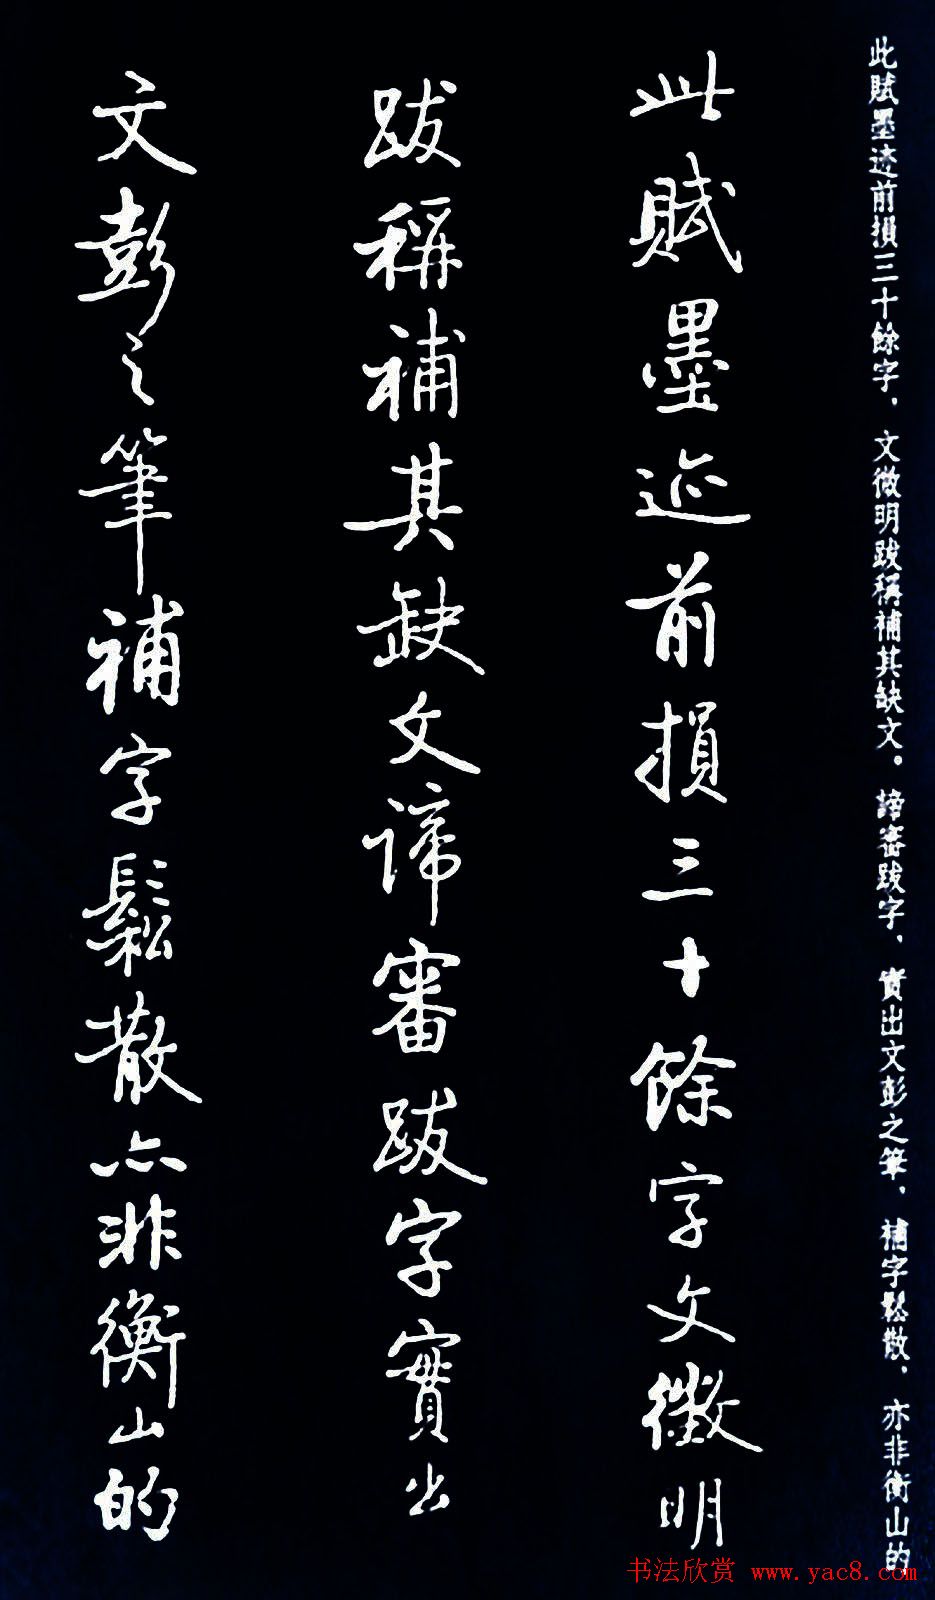 此賦墨迹前損三十餘字，文徵明跋稱補其缺文。諦審跋字，實出文彭之筆，補字鬆散，亦非衡山的
此賦墨迹前損三十餘字文徵明
跋稱補其缺文諦審跋字實出
文彭之筆補字鬆散亦非衡山的
书法欣赏 www.yac8.com